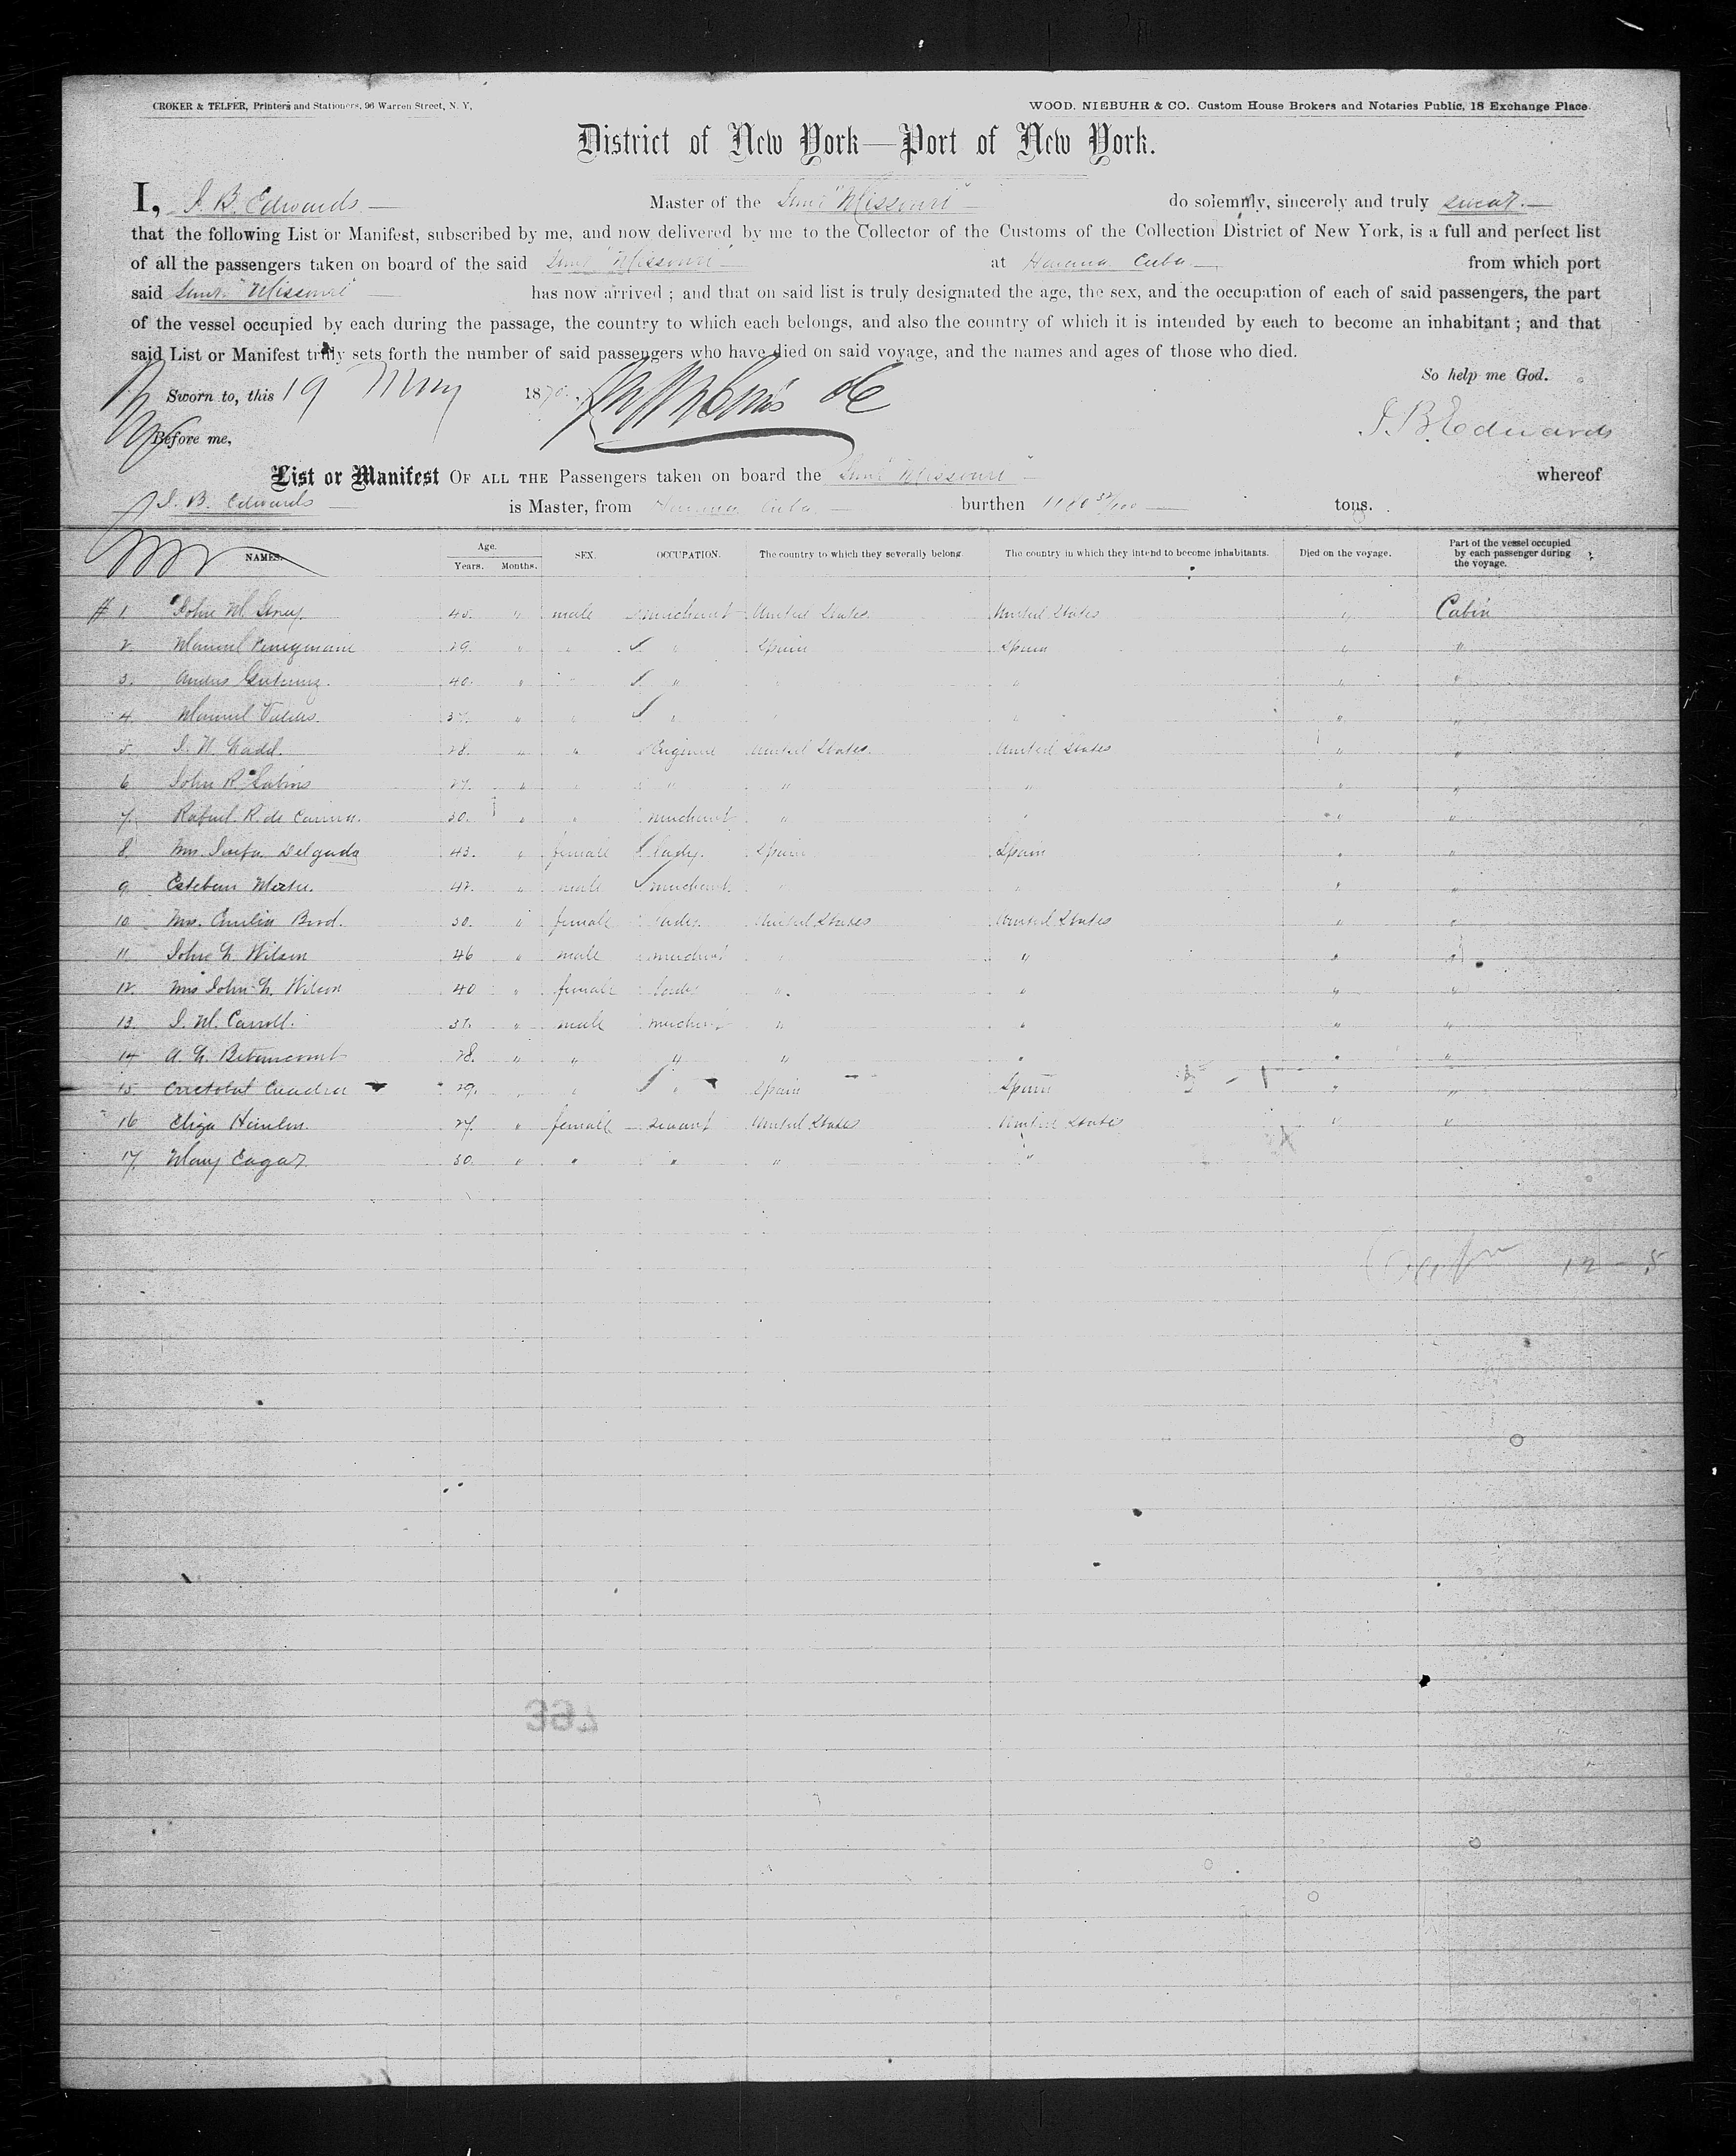 CROKER & TELFER, Printers and Stationers, 96 Warren Street, N. Y,
WOOD. NIEBUHR & CO. Custom House Brokers and Notaries Public, 18 Exchange Place.
District of New York—Port of New York.
I, J. B. Edwards Master of the Stmr "Missouri" do solemnly, sincerely and truly swear.
that the following List or Manifest, subscribed by me, and now delivered by me to the Collector of the Customs of the Collection District of New York, is a full and perfect list
of all the passengers taken on board of the said Stmr "Missouri" at Havana Cuba from which port
said Stmr. "Missouri" has now arrived ; and that on said list is truly designated the age, the sex, and the occupation of each of said passengers, the part
of the vessel occupied by each during the passage, the country to which each belongs, and also the country of which it is intended by each to become an inhabitant ; and that
said List or Manifest truly sets forth the number of said passengers who have died on said voyage, and the names and ages of those who died.
So help me God.
Sworn to, this 19 May 1870.
J. B. Edwards
Before me,
List or Manifest OF ALL THE Passengers taken on board the Stmr "Missouri" whereof
J. B. Edwards is Master, from Havana Cuba burthen tons.
NAMES. Age. Years. Months. SEX. OCCUPATION. The country to which they severally belong. The country in which they intend to become inhabitants. Died on the voyage. Part of the vessel occupied by each passenger during the voyage.
# 1. John M. 45. " male merchant United States United States " Cabin
2. Manuel 29. " " " Spain Spain " "
3. 40. " " " " " "
4. Manuel " " " " " "
5. 28. " " United States United States " "
6. John R. 27. " " " " " " "
7. Rafael R. de 30. " " merchant " " " "
8. Mrs. Delgado 43. " female lady. Spain Spain " "
9. Esteban 42. " male merchant " " " "
10. Mrs. Emilia 30. " female United States United States " "
11. John Wilson 46 " male merchant " " " "
12. Mrs John Wilson 40 " female " " " "
13. J. M. Carroll. 37. " male merchant " " " "
14 A. Betancourt 28. " " " " " " "
15 Cristobal Cuadra 29. " " " Spain Spain " "
5 - 1
16 Eliza 27. " female servant United States United States " "
17. Mary Eagar 30. " " " " "
12 - 5